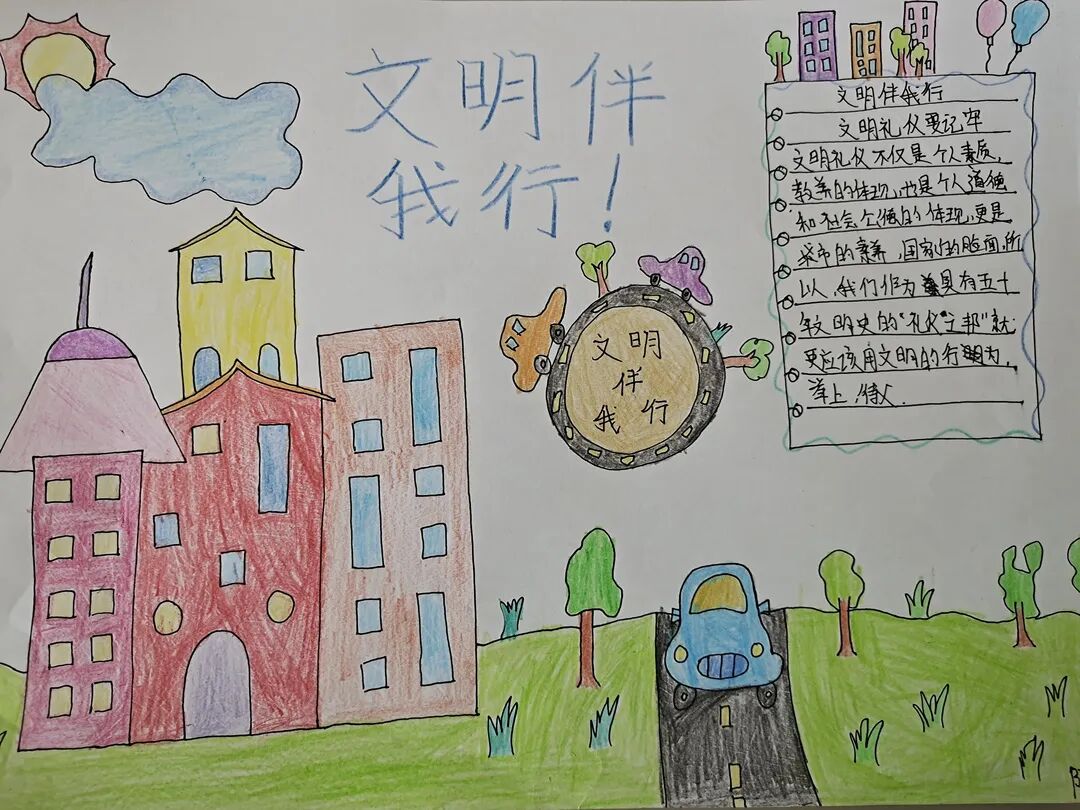 文明伴
我行！
文明
伴
我行
文明伴我行
文明礼仪要记牢
文明礼仪不仅是个人素质，
教养的体现，也是个人道德
和社会公德的体现，更是
城市的素养，国家的脸面，所
以，我们作为具有五千
年文明史的“礼仪之邦”就
更应该用文明的行为，
举上，待人．